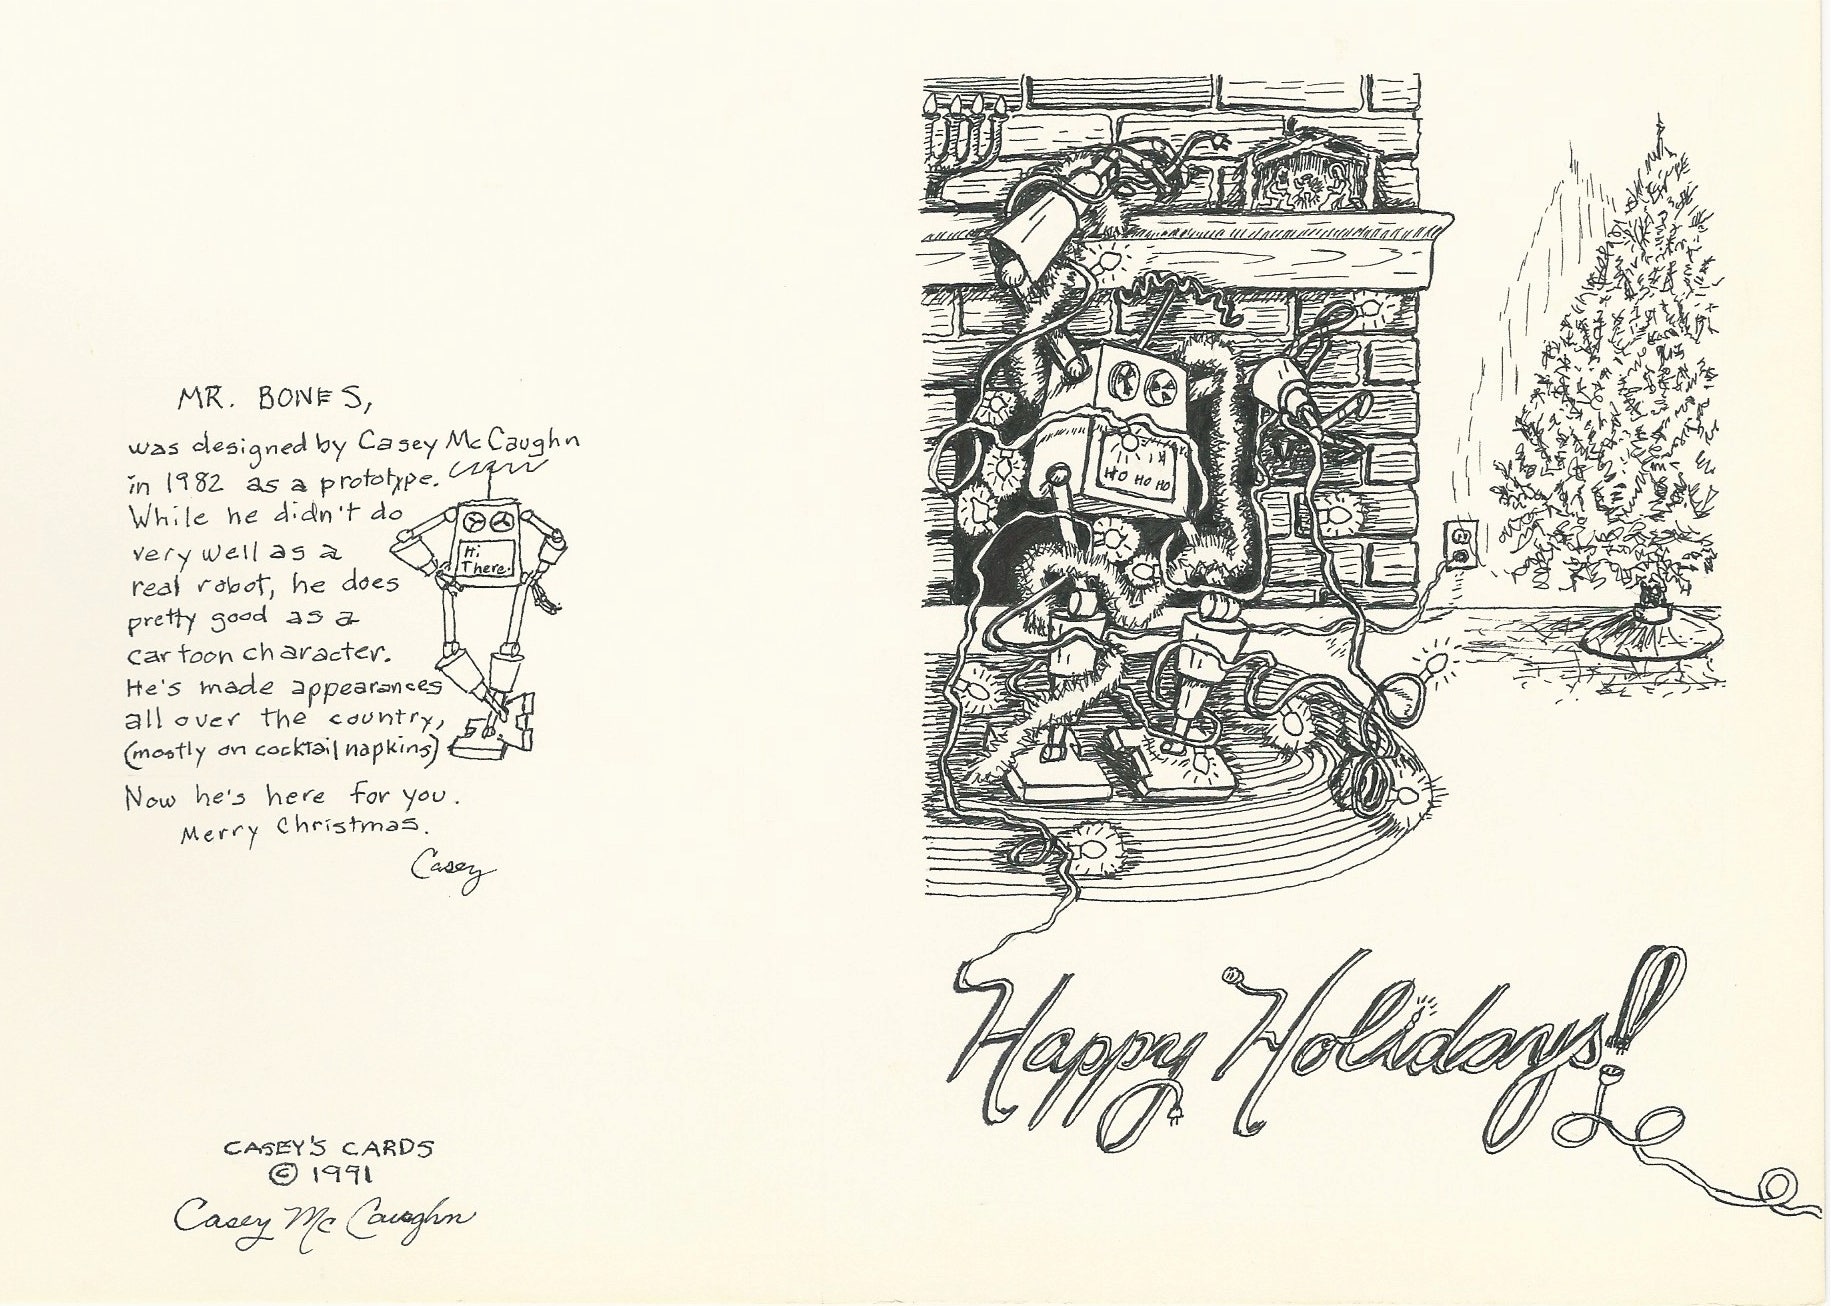 MR. BONES,
was designed by Casey McCaughn
in 1982 as a prototype.
While he didn't do
very well as a
real robot, he does
pretty good as a
cartoon character.
He's made appearances
all over the country,
(mostly on cocktail napkins)
Now he's here for you.
Merry Christmas.
Casey
Hi
There.
CASEY'S CARDS
© 1991
Casey McCaughn
HO HO HO
Happy Holidays!